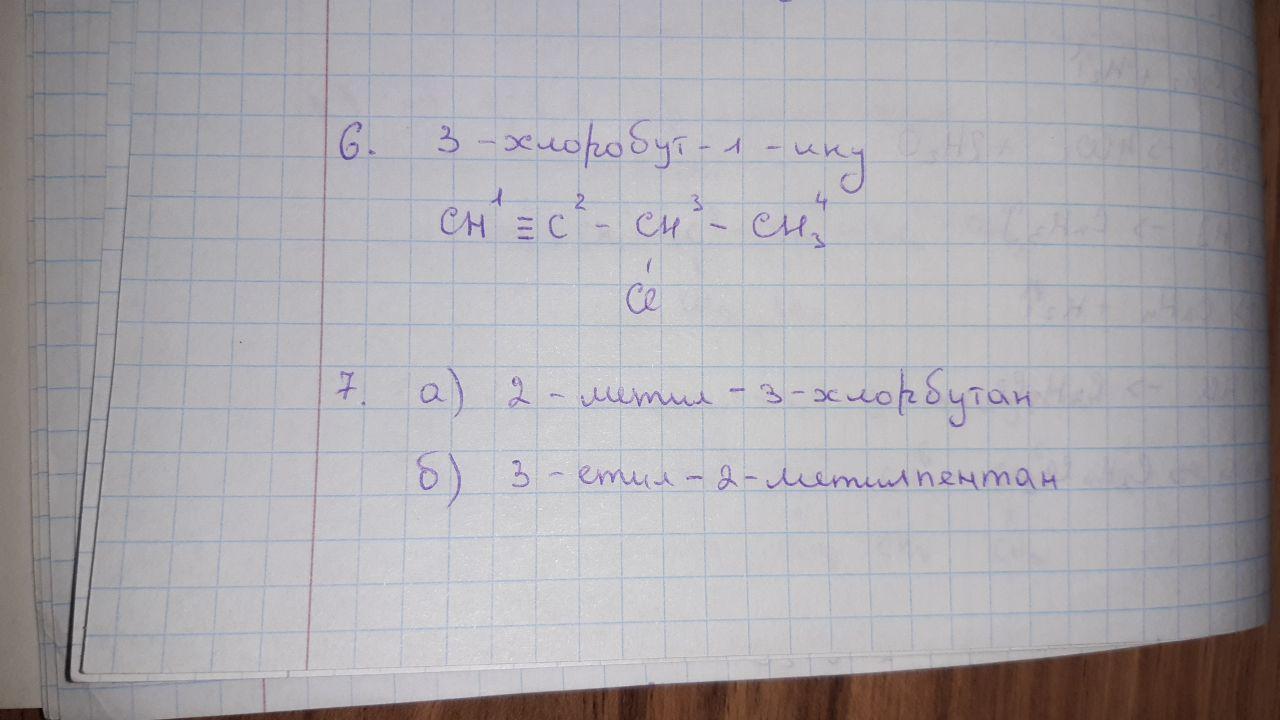 6. 3 - хлоробут - 1 - ину
CH¹ ≡ C² - CH³ - CH₃⁴
Cl
7. а) 2 - метил - 3 - хлорбутан
б) 3 - етил - 2 - метилпентан